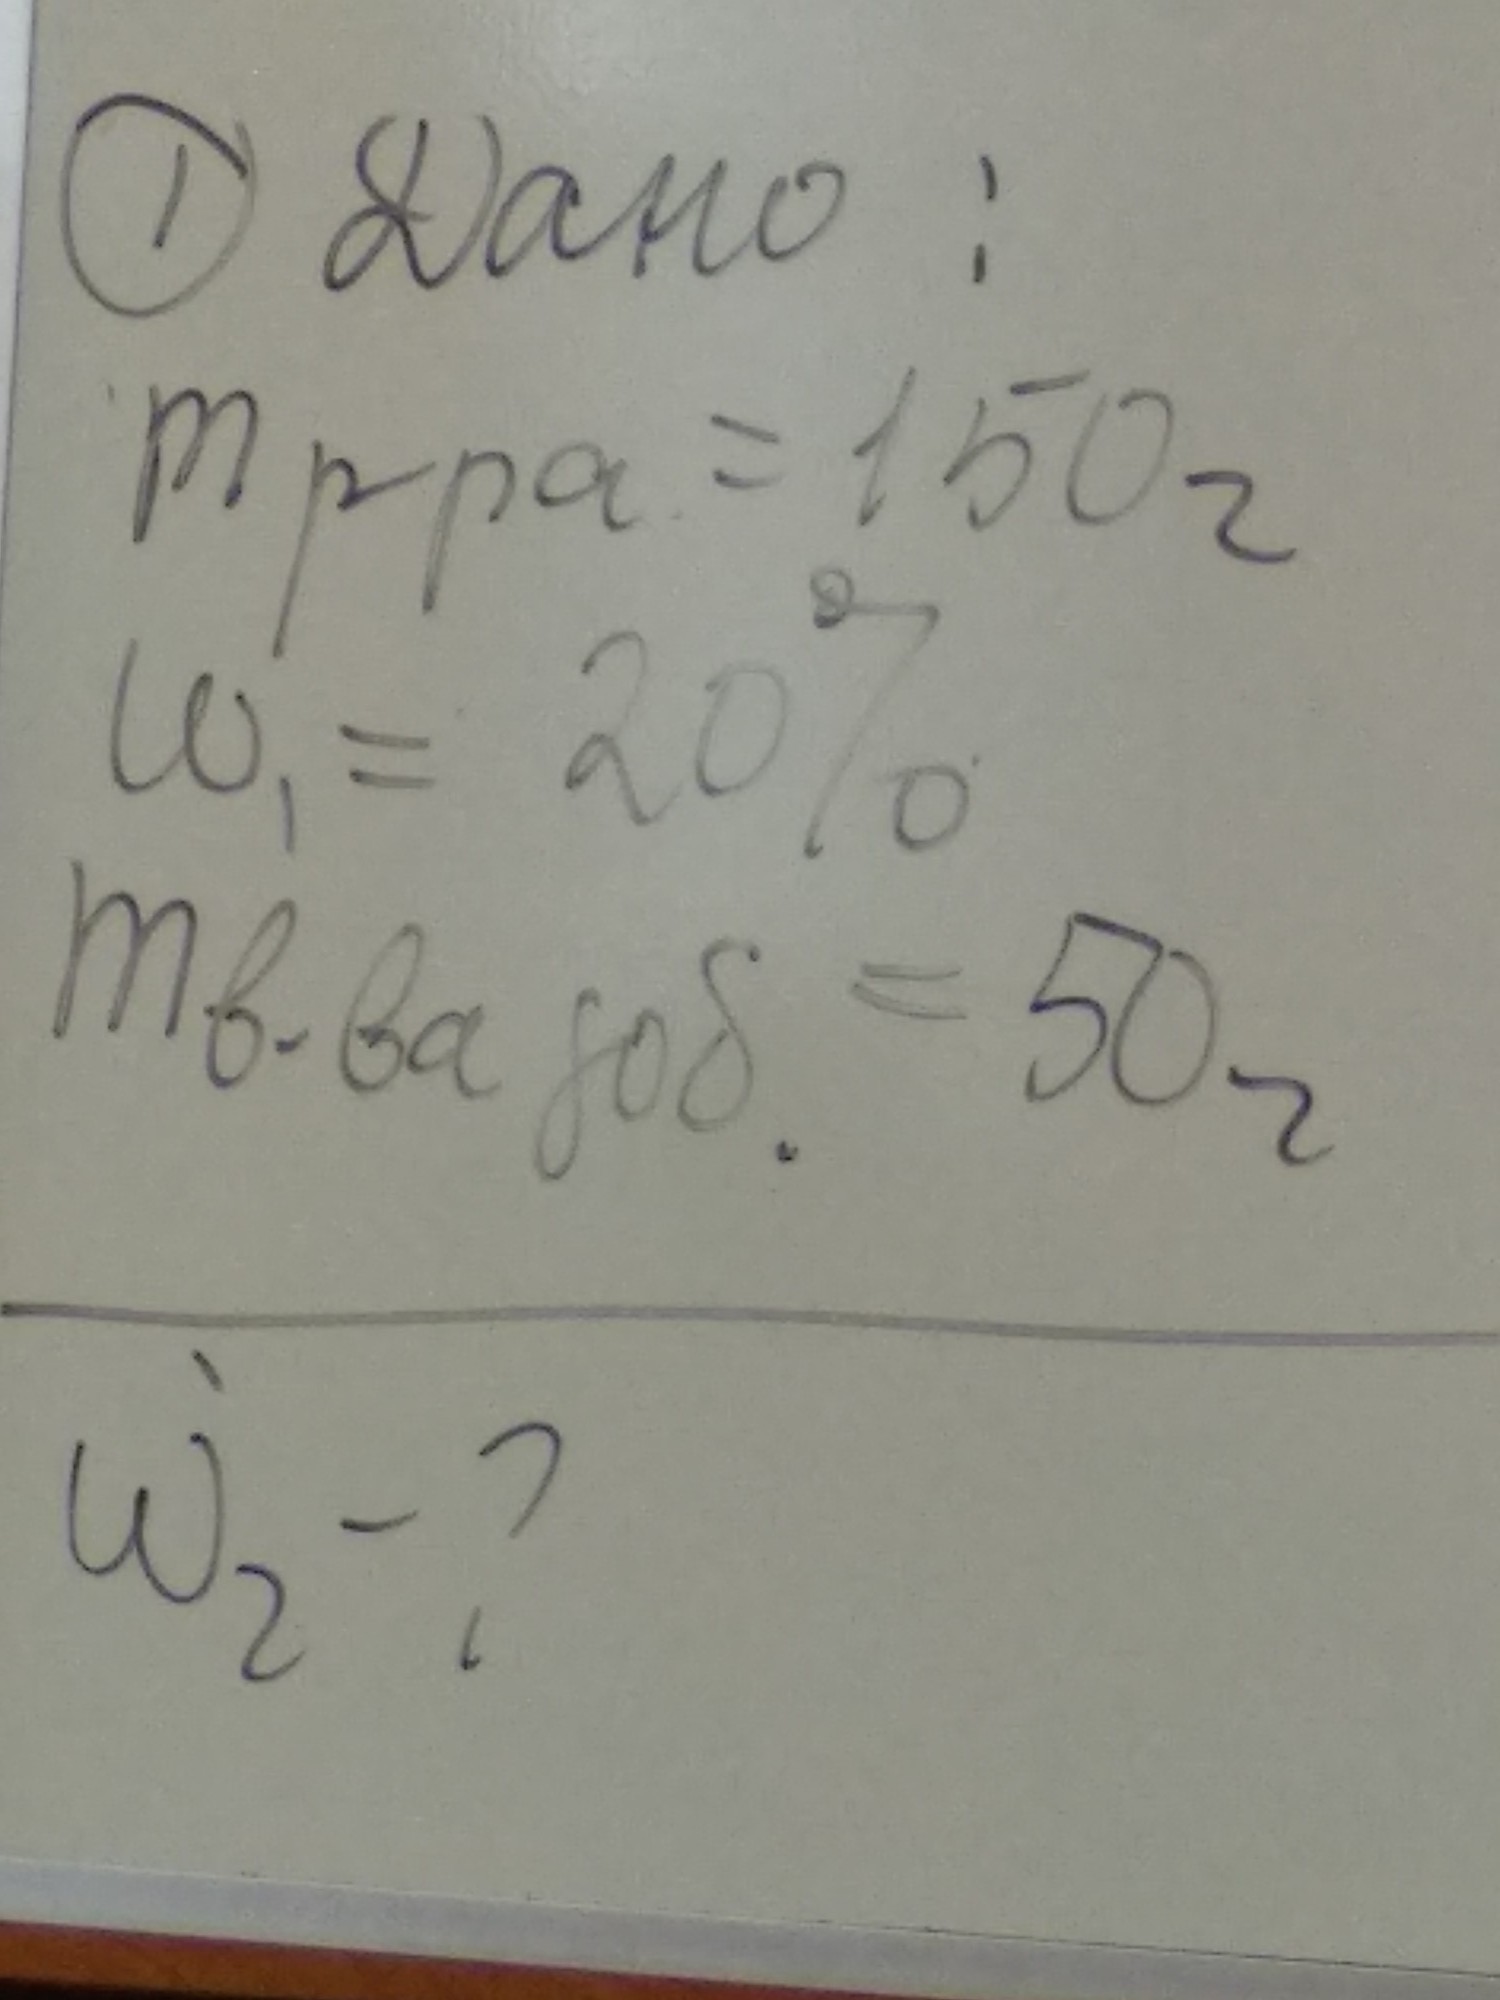 ① Дано:
m р-ра = 150 г
ω₁ = 20%
m в-ва доб. = 50 г
ω₂ - ?